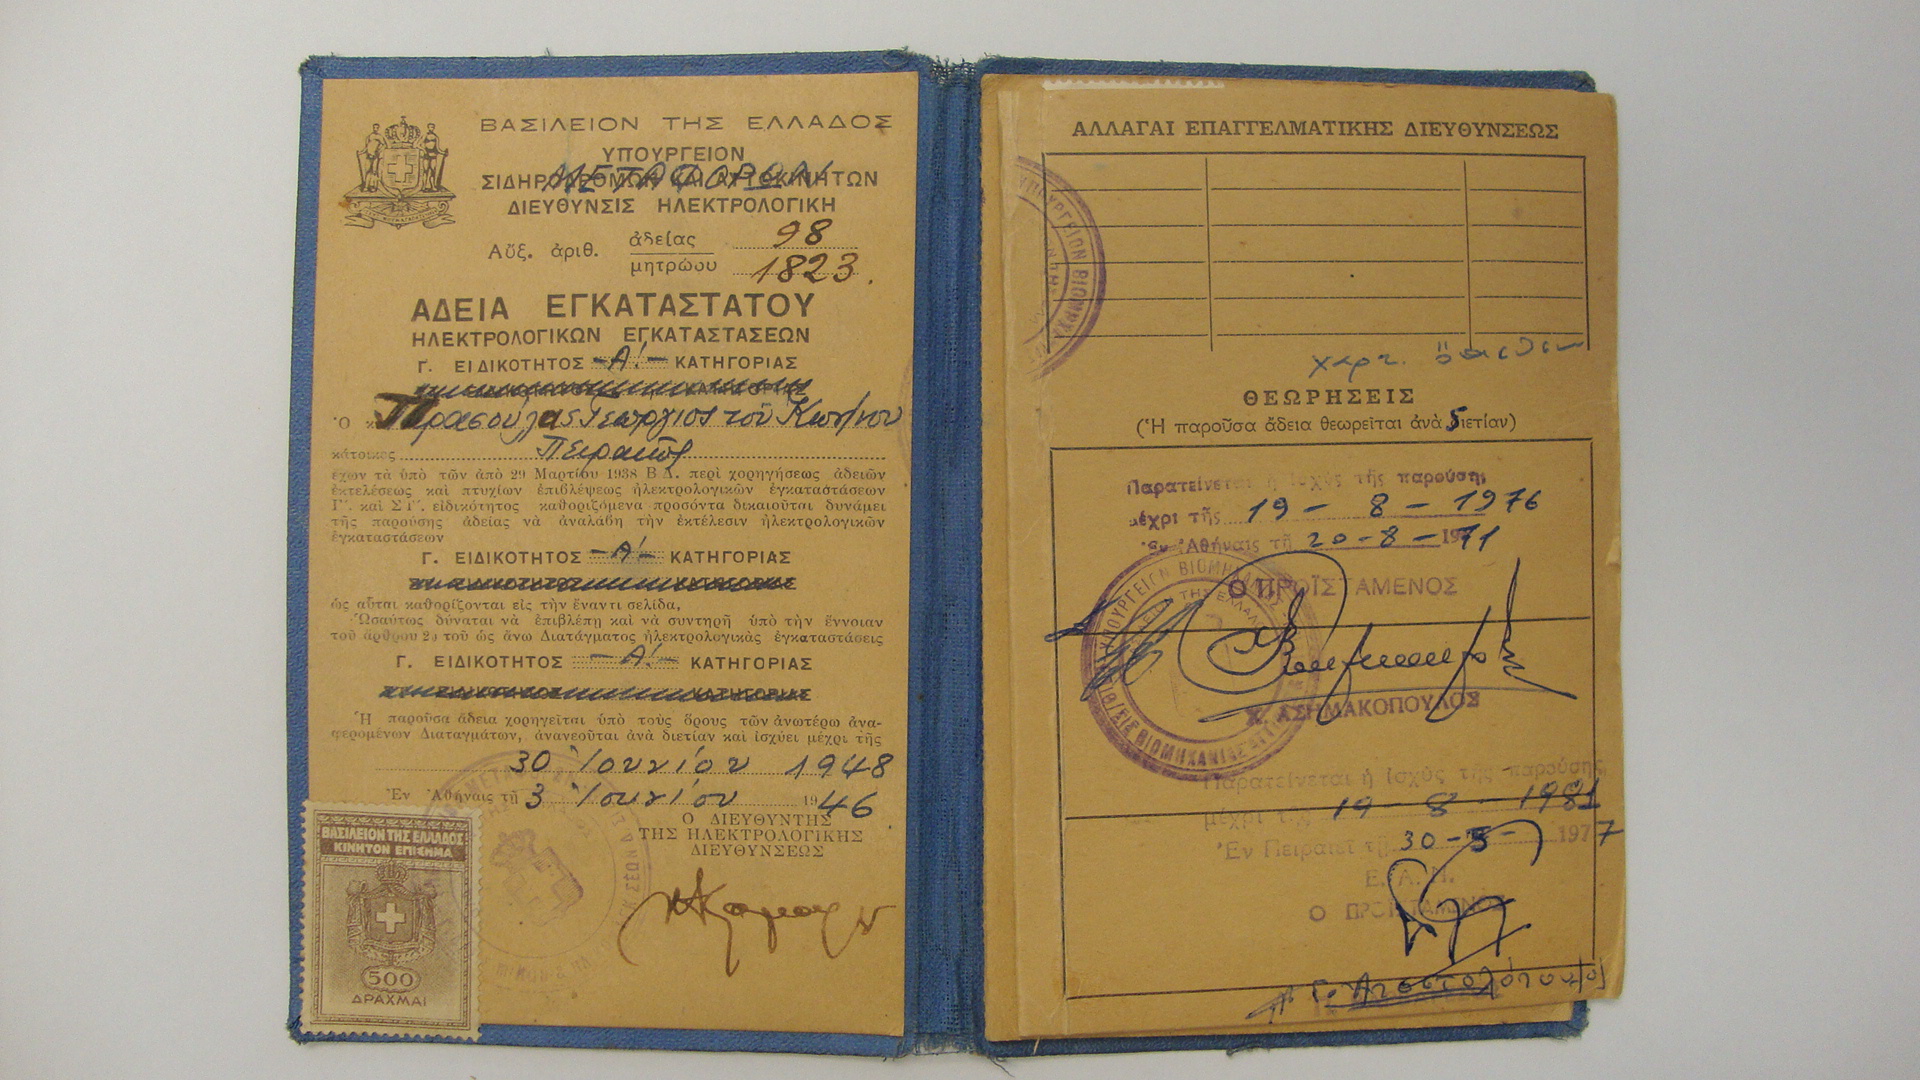 ΒΑΣΙΛΕΙΟΝ ΤΗΣ ΕΛΛΑΔΟΣ
ΥΠΟΥΡΓΕΙΟΝ
ΜΕΤΑΦΟΡΩΝ
ΣΙΔΗΡΟΔΡΟΜΩΝ ΚΑΙ ΑΥΤΟΚΙΝΗΤΩΝ
ΔΙΕΥΘΥΝΣΙΣ ΗΛΕΚΤΡΟΛΟΓΙΚΗ
Αὔξ. ἀριθ. ἀδείας 98
μητρώου 1823.
ΑΔΕΙΑ ΕΓΚΑΤΑΣΤΑΤΟΥ
ΗΛΕΚΤΡΟΛΟΓΙΚΩΝ ΕΓΚΑΤΑΣΤΑΣΕΩΝ
Γ. ΕΙΔΙΚΟΤΗΤΟΣ -Α!- ΚΑΤΗΓΟΡΙΑΣ
Ὁ κ. Πρασούλας Γεώργιος τοῦ Κων/νου
κάτοικος Πειραιῶς
ἔχων τὰ ὑπὸ τῶν ἀπὸ 29 Μαρτίου 1938 Β.Δ. περὶ χορηγήσεως ἀδειῶν
ἐκτελέσεως καὶ πτυχίων ἐπιβλέψεως ἠλεκτρολογικῶν ἐγκαταστάσεων
Γ'. καὶ ΣΤ'. εἰδικότητος καθοριζόμενα προσόντα δικαιοῦται δυνάμει
τῆς παρούσης ἀδείας νὰ ἀναλάβῃ τὴν ἐκτέλεσιν ἠλεκτρολογικῶν
ἐγκαταστάσεων
Γ. ΕΙΔΙΚΟΤΗΤΟΣ -Α!- ΚΑΤΗΓΟΡΙΑΣ
ὡς αὗται καθορίζονται εἰς τὴν ἔναντι σελίδα,
Ὡσαύτως δύναται νὰ ἐπιβλέπῃ καὶ νὰ συντηρῇ ὑπὸ τὴν ἔννοιαν
τοῦ ἄρθρου 2α τοῦ ὡς ἄνω Διατάγματος ἠλεκτρολογικὰς ἐγκαταστάσεις
Γ. ΕΙΔΙΚΟΤΗΤΟΣ -Α!- ΚΑΤΗΓΟΡΙΑΣ
Ἡ παροῦσα ἄδεια χορηγεῖται ὑπὸ τοὺς ὅρους τῶν ἀνωτέρω ἀνα-
φερομένων Διαταγμάτων, ἀνανεοῦται ἀνὰ διετίαν καὶ ἰσχύει μέχρι τῆς
30 Ἰουνίου 1948
Ἐν Ἀθήναις τῇ 3 Ἰουνίου 1946.
Ο ΔΙΕΥΘΥΝΤΗΣ
ΤΗΣ ΗΛΕΚΤΡΟΛΟΓΙΚΗΣ
ΔΙΕΥΘΥΝΣΕΩΣ
ΒΑΣΙΛΕΙΟΝ ΤΗΣ ΕΛΛΑΔΟΣ
ΚΙΝΗΤΟΝ ΕΠΙΣΗΜΑ
500
ΔΡΑΧΜΑΙ
ΑΛΛΑΓΑΙ ΕΠΑΓΓΕΛΜΑΤΙΚΗΣ ΔΙΕΥΘΥΝΣΕΩΣ
ΥΠΟΥΡΓΕΙΟΝ ΒΙΟΜΗΧΑ
χαρτ. ὄπισθεν
ΘΕΩΡΗΣΕΙΣ
(Ἡ παροῦσα ἄδεια θεωρεῖται ἀνὰ 5ετίαν)
Παρατείνεται ἡ ἰσχὺς τῆς παρούσης
μέχρι τῆς 19 - 8 - 1976
Ἐν Ἀθήναις τῇ 20-8-1971
Ο ΠΡΟΪΣΤΑΜΕΝΟΣ
ΥΠΟΥΡΓΕΙΟΝ ΒΙΟΜΗΧΑΝΙΑΣ
Χ. ΑΣΗΜΑΚΟΠΟΥΛΟΣ
Παρατείνεται ἡ ἰσχὺς τῆς παρούσης
μέχρι τῆς 19 - 8 - 1981
Ἐν Πειραιεῖ τῇ 30-5-1977
Ε. Α. Ν.
Ο ΠΡΟΪΣΤΑΜΕΝΟΣ
Γ. Αποστολόπουλος